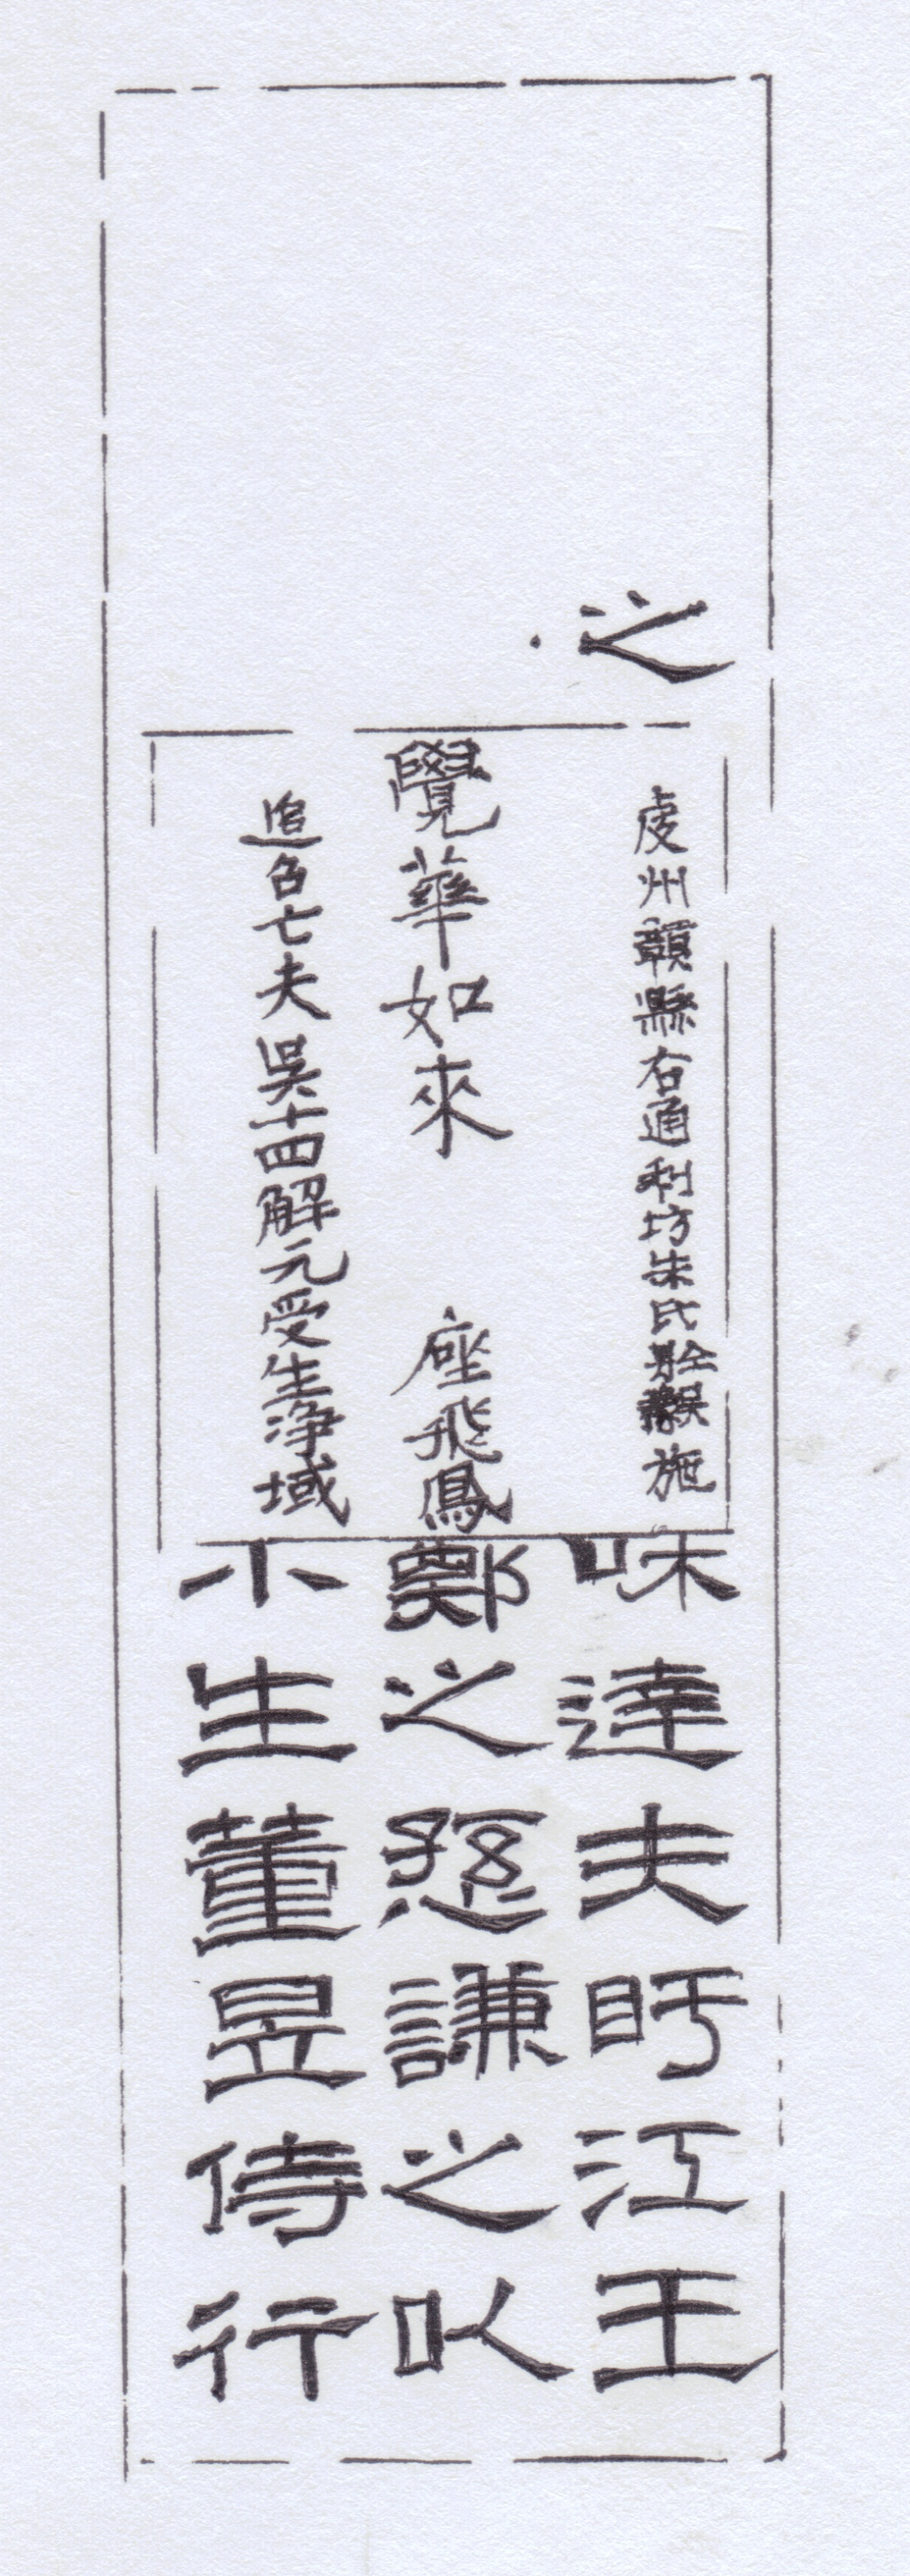 之
虔州贛縣右通利坊朱氏施
覺華如來 座飛鳳
追召亡夫吳十四解元受生淨域
味達夫盱江王
鄭之愻謙之以
小生董昱侍行